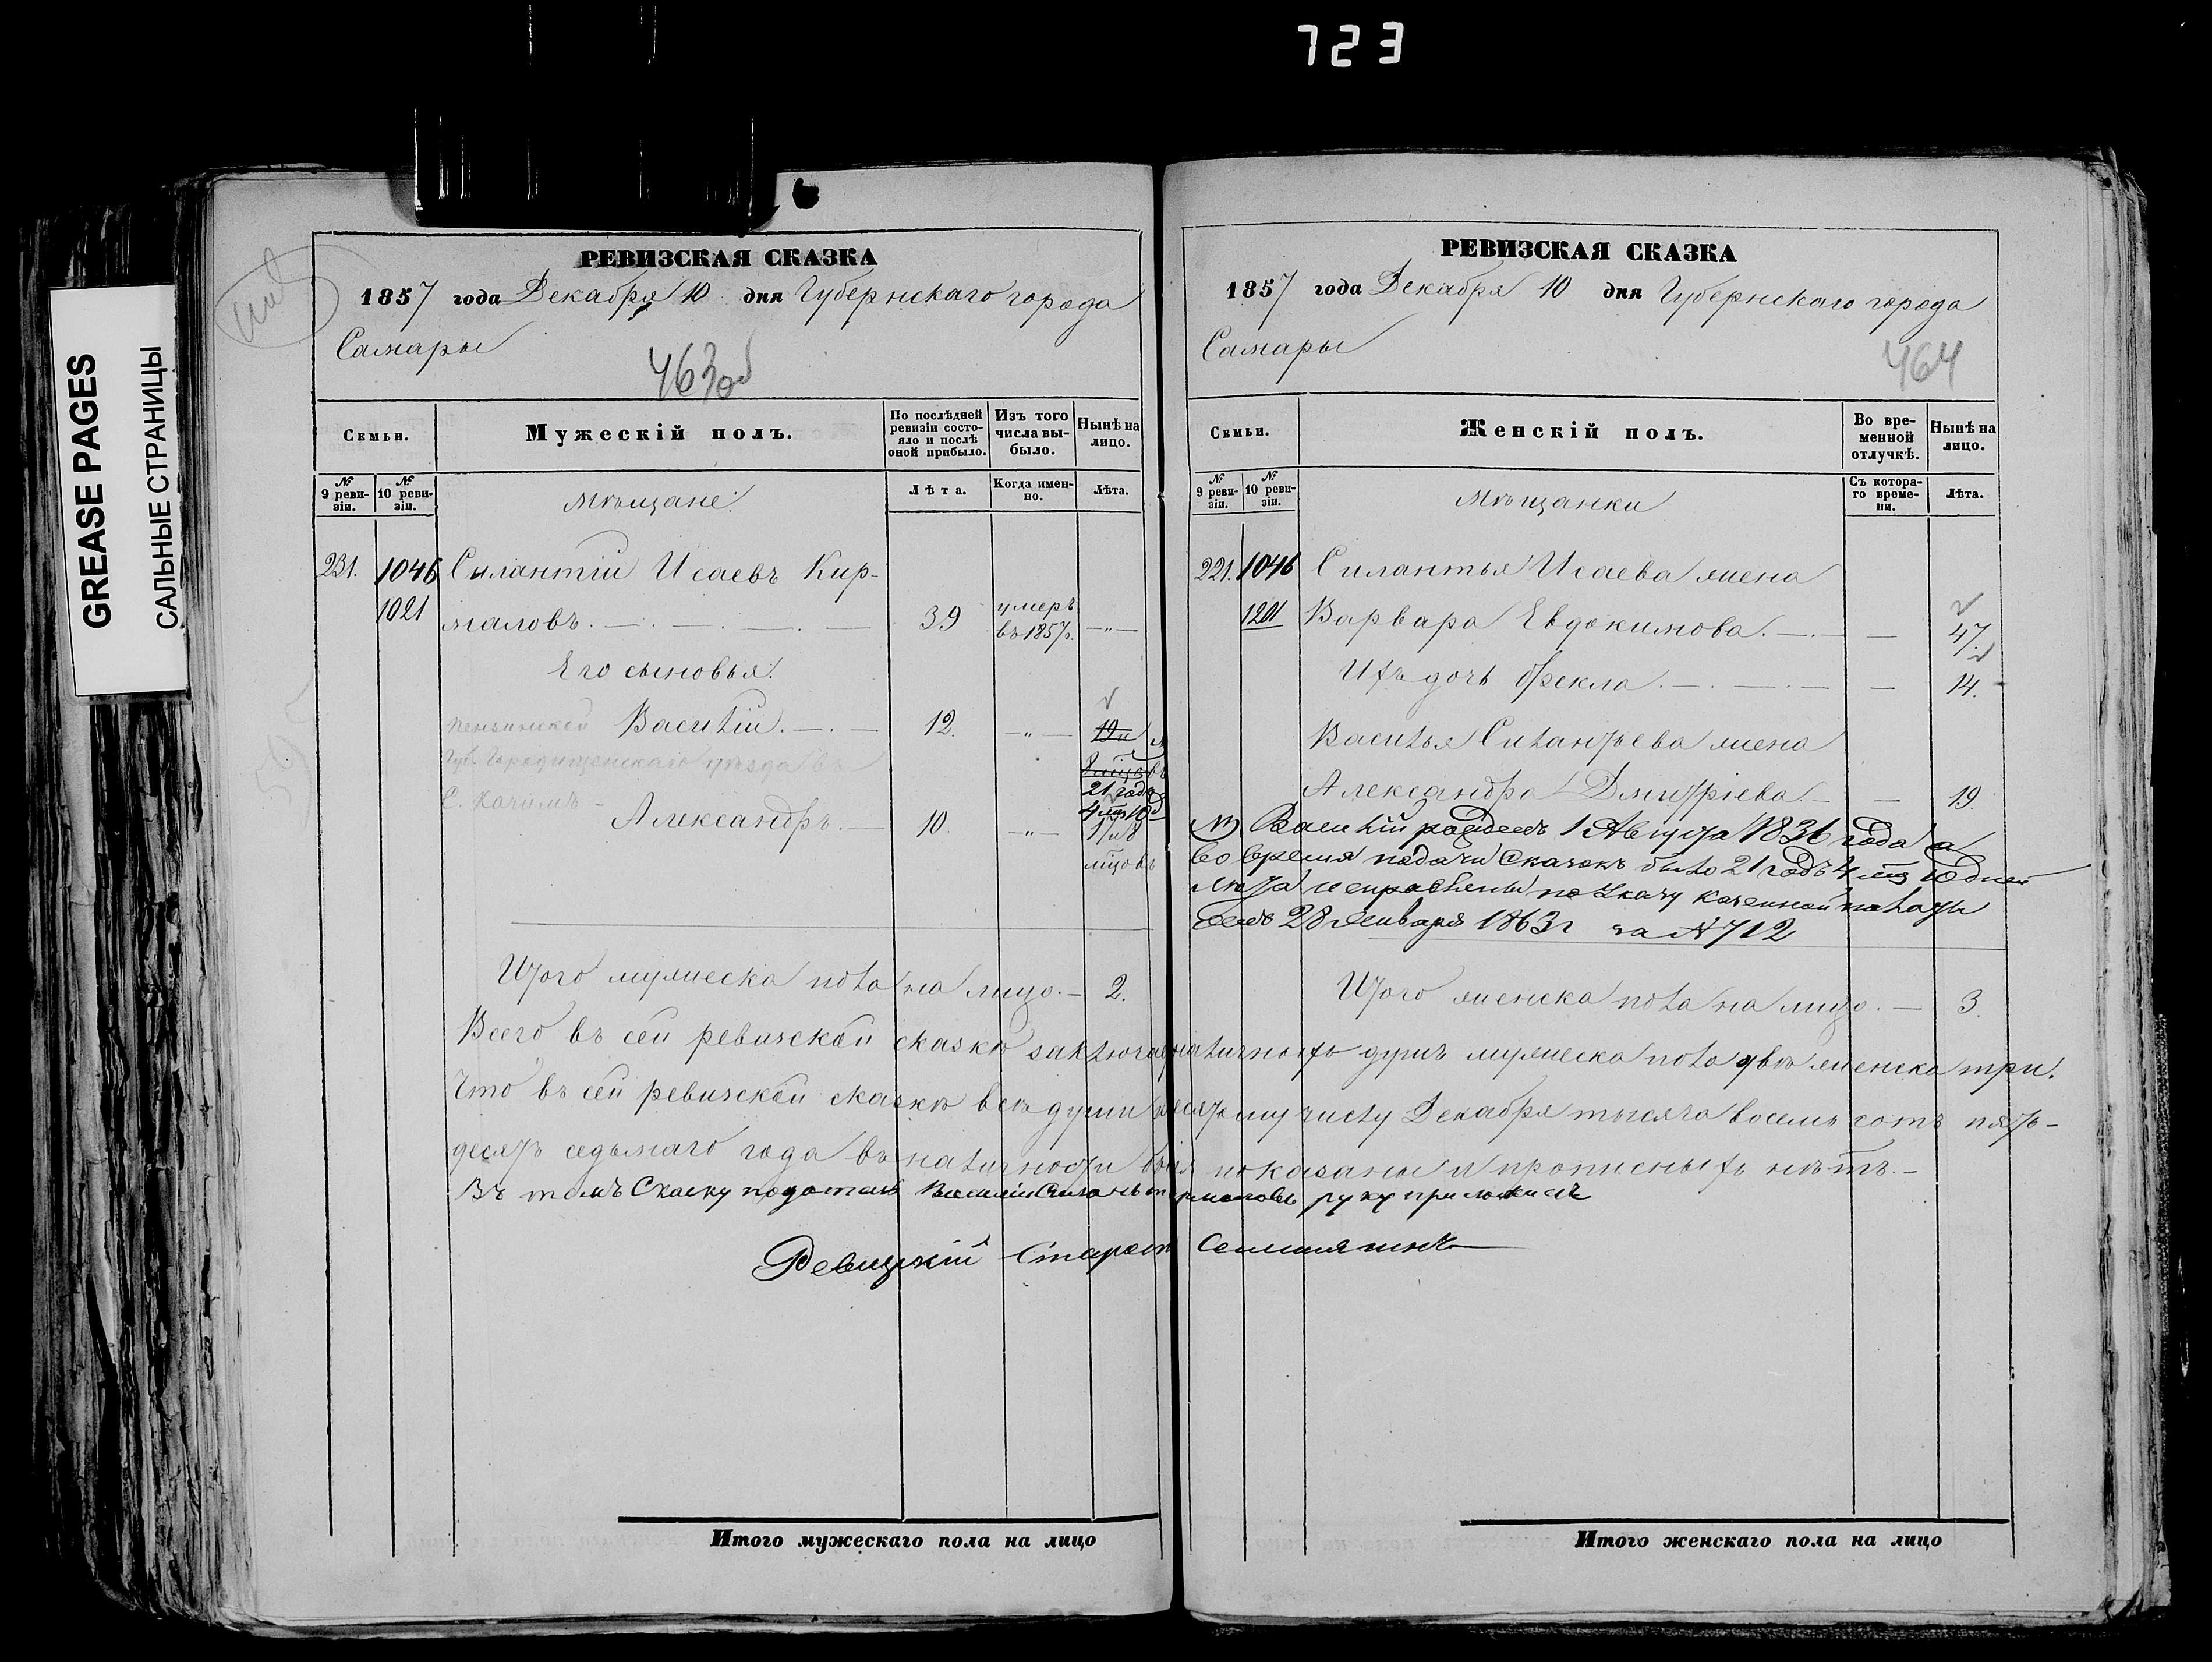 723
GREASE PAGES
САЛЬНЫЕ СТРАНИЦЫ
РЕВИЗСКАЯ СКАЗКА
1857 года Декабря 10 дня Губернскаго города
Самары
463об
Семьи.
Мужескій полъ.
По послѣдней ревизіи состояло и послѣ оной прибыло.
Изъ того числа выбыло.
Нынѣ на лицо.
№ 9 ревизіи.
№ 10 ревизіи.
Мѣщане.
Лѣта.
Когда именно.
Лѣта.
231. 1046 Силантій Исаевъ Кир-
1021 маловъ. 39 умеръ въ 1857г. -„-
Его сыновья.
Пензинской Василій. 12. -„- 19 и
Губ. Городищенскаго уѣзда въ
21 годъ
С. Качимъ -
4 мц 10 д
Александръ. 10. -„- 17 и 8
мцовъ
Итого мужеска пола на лицо. - 2.
РЕВИЗСКАЯ СКАЗКА
1857 года Декабря 10 дня Губернскаго города
Самары
464
Семьи.
Женскій полъ.
Во временной отлучкѣ.
Нынѣ на лицо.
№ 9 ревизіи.
№ 10 ревизіи.
Мѣщанки
Съ котораго времени.
Лѣта.
221. 1046 Силантья Исаева жена
1201 Варвара Евдокимова. - 47.
Ихъ дочь Фекла. - 14.
Василья Силантьева жена
Александра Дмитріева. - 19.
Василій рожденъ 1 Августа 1836 года а
во время подачи Сказокъ было 21 годъ 4 мц 10 дней
лѣта исправлены по Указу казенной палаты
28 Января 1863г за № 712
Итого женска пола на лицо. - 3.
Всего въ сей ревизской сказкѣ наличныхъ душъ мужеска пола двѣ женска три.
Что въ сей ревизской сказкѣ всѣ души къ десятому числу Декабря тысяча восемь сотъ пять-
десятъ седьмаго года въ наличности бывшія показаны и прописныхъ нѣтъ. -
Въ томъ Скаску податаль Василій руку приложилъ
Ревизкій Старост
Итого мужескаго пола на лицо
Итого женскаго пола на лицо